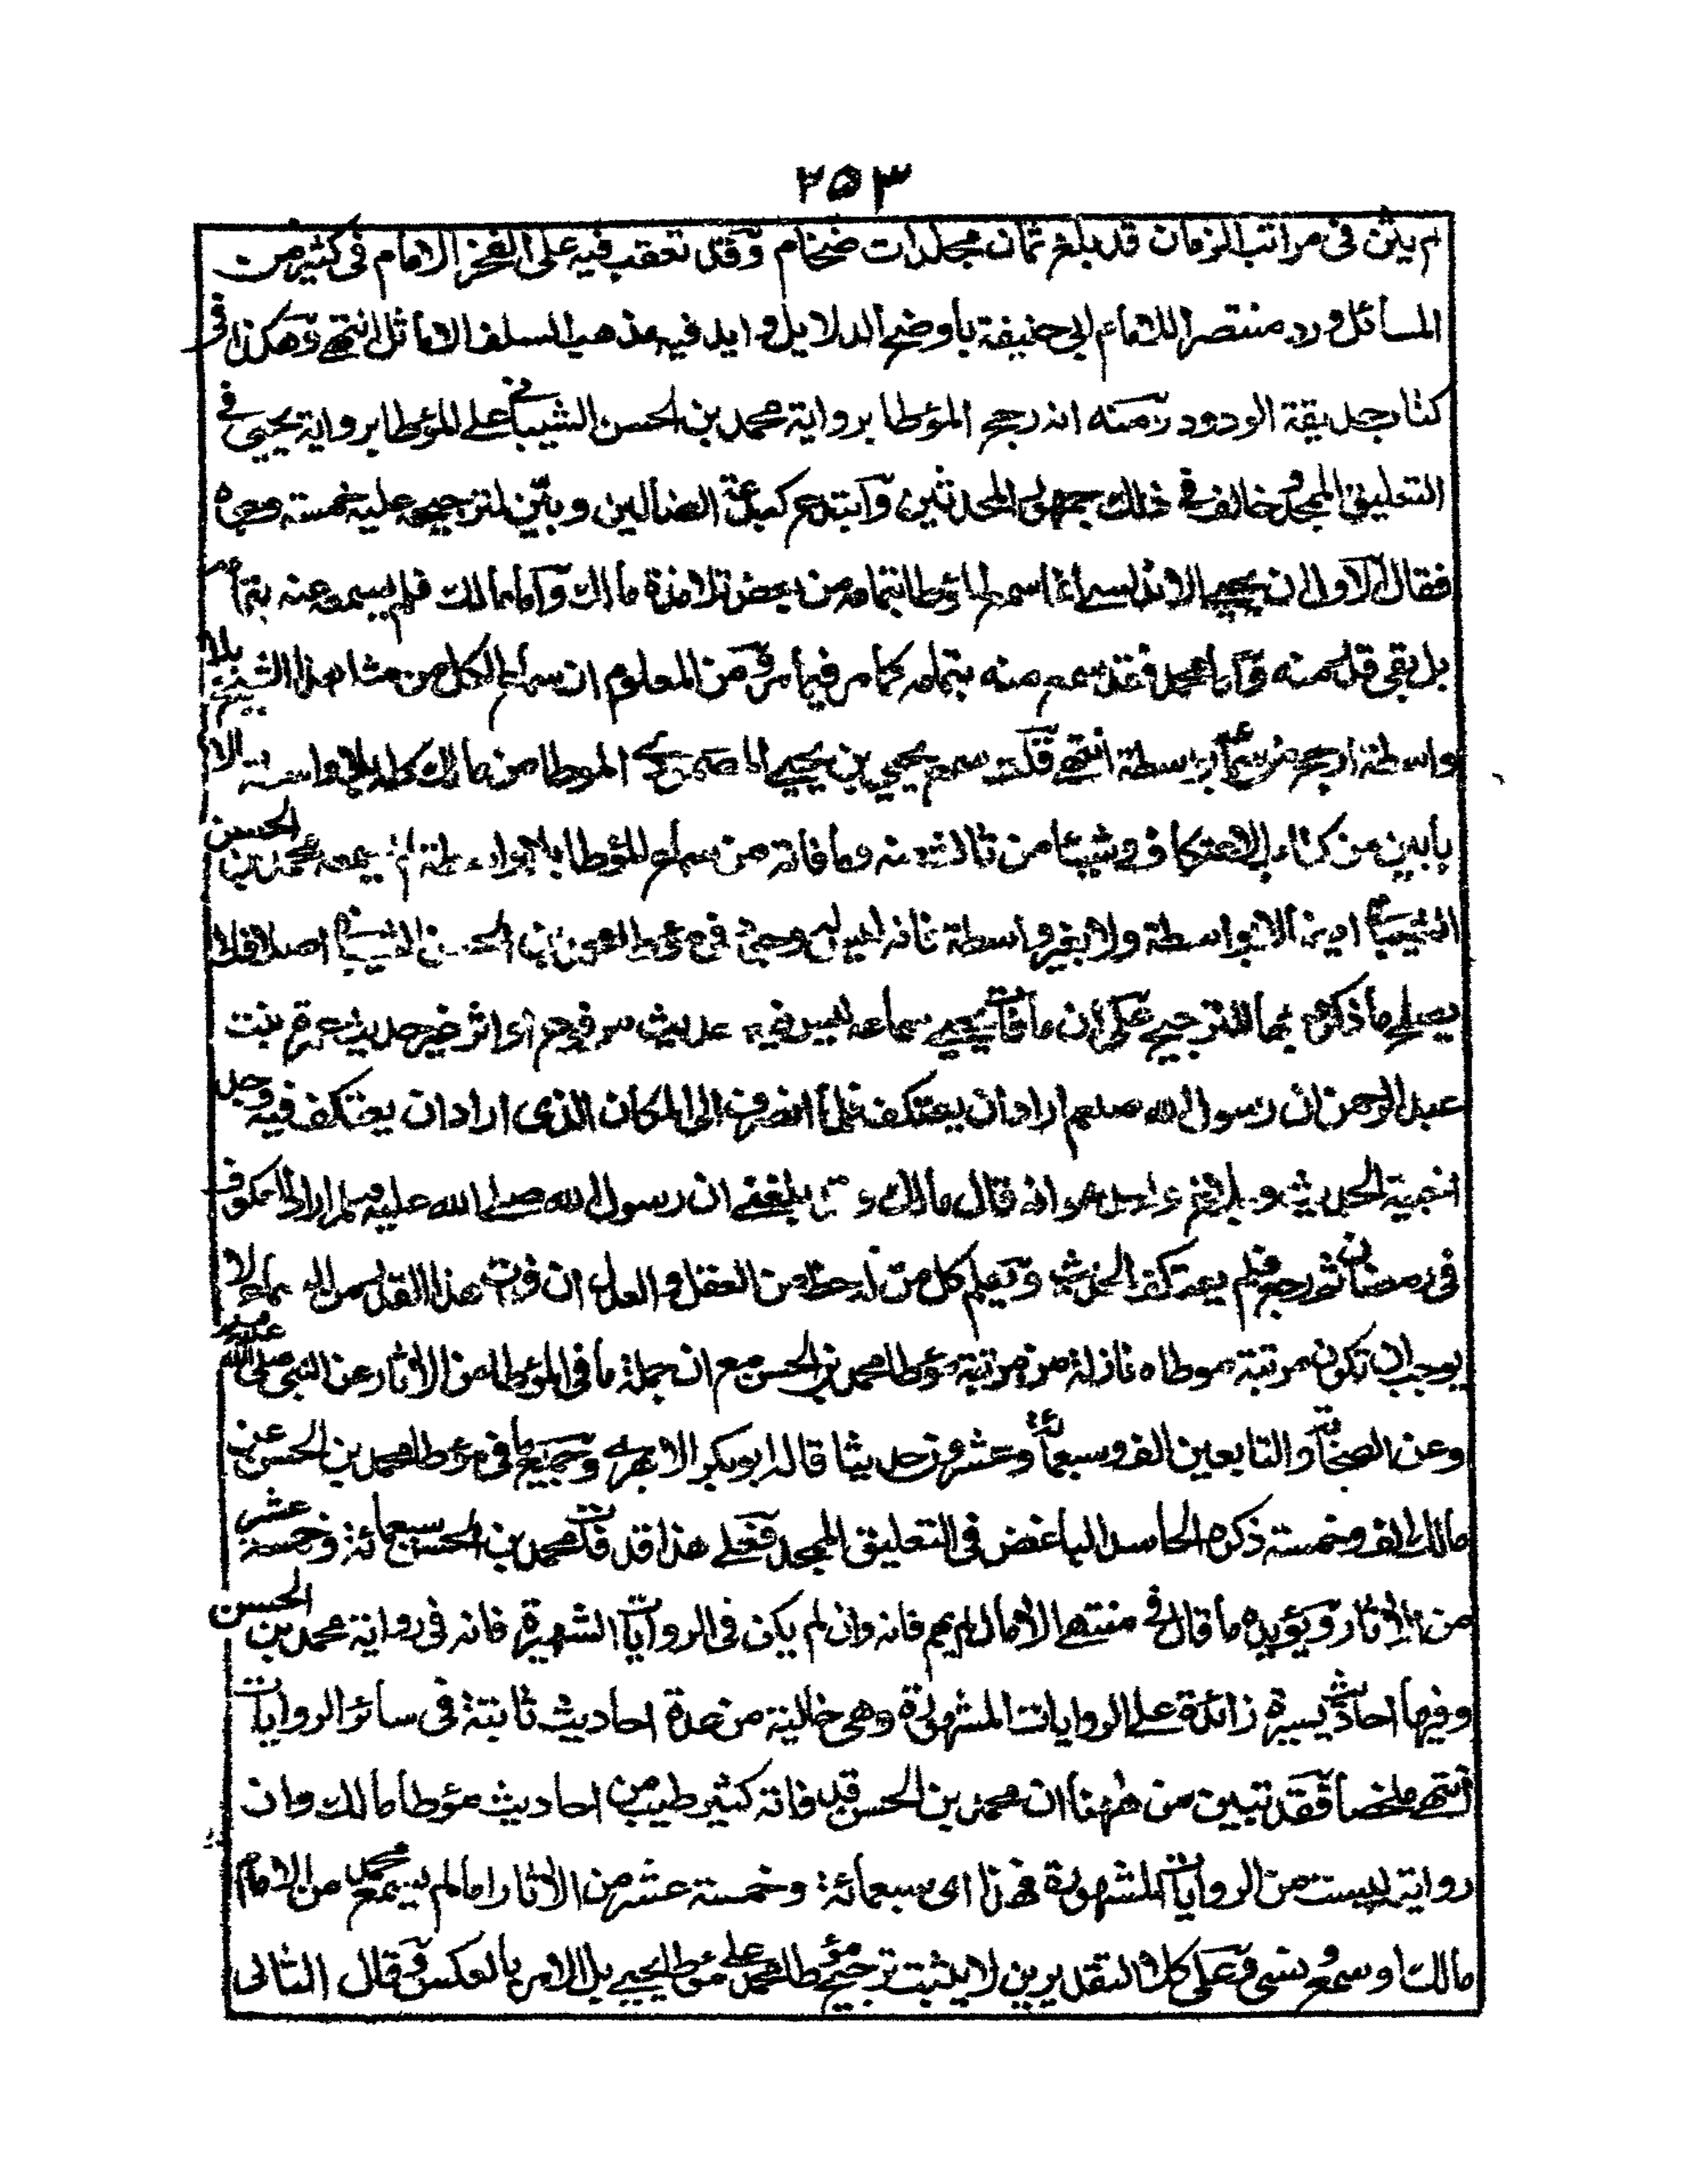 ٢٥٣
في مراتب الزمان قد بلغ ثمان مجلدات ضخام وقد تعقب فيه على الفخر الامام في كثير من
المسائل ورد منتصرا للامام ابي حنيفة باوضح الدلايل وايد فيه مذهب السلف الاماثل انتهى وهكذا في
كتاب حديقة الودود ومنه انه رجح المؤطا برواية محمد بن الحسن الشيباني على المؤطا برواية يحيى في
التعليق الممجد وخالف في ذلك جمهور المحدثين وابتدع كبدعة الضالين وبين لترجيحه عليه خمسة وجوه
فقال الاول ان يحيى الاندلسي انما سمع المؤطا بتمامه من بعض تلامذة مالك واما مالك فلم يسمعه عنه بتمامه
بل بقي قدر منه واما محمد فقد سمع منه بتمامه كما مر فيما مر ومن المعلوم ان سماع الكل من مثل هذا الشيخ بلا
واسطة ارجح من سماعه بواسطة انتهى قلت سمع يحيى بن يحيى المصمودي الموطا من مالك كله بلا واسطة الا
بابين من كتاب الاعتكاف وشيئا من ثالث منه وما فاته من سماع المؤطا بلا واسطة لم يسمعه محمد بن الحسن
الشيباني ايضا لا بواسطة ولا بغير واسطة فانه ليس بموجود في مؤطا محمد بن الحسن الشيباني اصلا فلا
يصلح ما ذكره بها للترجيح على ان ما فات يحيى سماعه ليس فيه حديث مرفوع او اثر غير حديث عمرة بنت
عبد الرحمن ان رسول الله صلعم اراد ان يعتكف فلما انصرف الى المكان الذي اراد ان يعتكف فيه وجد
اخبية الحديث وبلاغ واحد هو انه قال مالك و بلغني ان رسول الله صلى الله عليه وسلم اراد العكوف
في رمضان ثم رجع فلم يعتكف الحديث ويعلم كل من له حظ من العقل والعدل ان فوت هذا القدر من السماع لا
يوجب ان تكون مرتبة موطاه نازلة من مرتبة مؤطا محمد بن الحسن مع ان جملة ما في المؤطا من الاثار عن النبي صلى الله عليه وسلم
وعن الصحابة والتابعين الف وسبعمائة وعشرون حديثا قاله ابو بكر الابهري وجميع ما في مؤطا محمد بن الحسن عن
مالك الف وخمسة ذكره الحاسد الباغض في التعليق الممجد فعلى هذا قد فات محمد بن الحسن سبعمائة وخمسة عشر
من الاثار ويؤيده ما قال في منتهى الامال فانه وان لم يكن في الروايات الشهيرة فانه في رواية محمد بن الحسن
وفيها احاديث يسيرة زائدة على الروايات المشهورة وهي خالية من عدة احاديث ثابتة في سائر الروايات
انتهى ملخصا فقد تبين من ههنا ان محمد بن الحسن قد فاته كثير طيب من احاديث مؤطا مالك وان
روايته ليست من الروايات المشهورة فهذا اى سبعمائة وخمسة عشر من الاثار اما لم يسمع محمد من الامام
مالك او سمع ونسي وعلى كلا التقديرين لا يثبت ترجيح مؤطا محمد على مؤطا يحيى بل الامر بالعكس وقال الثاني